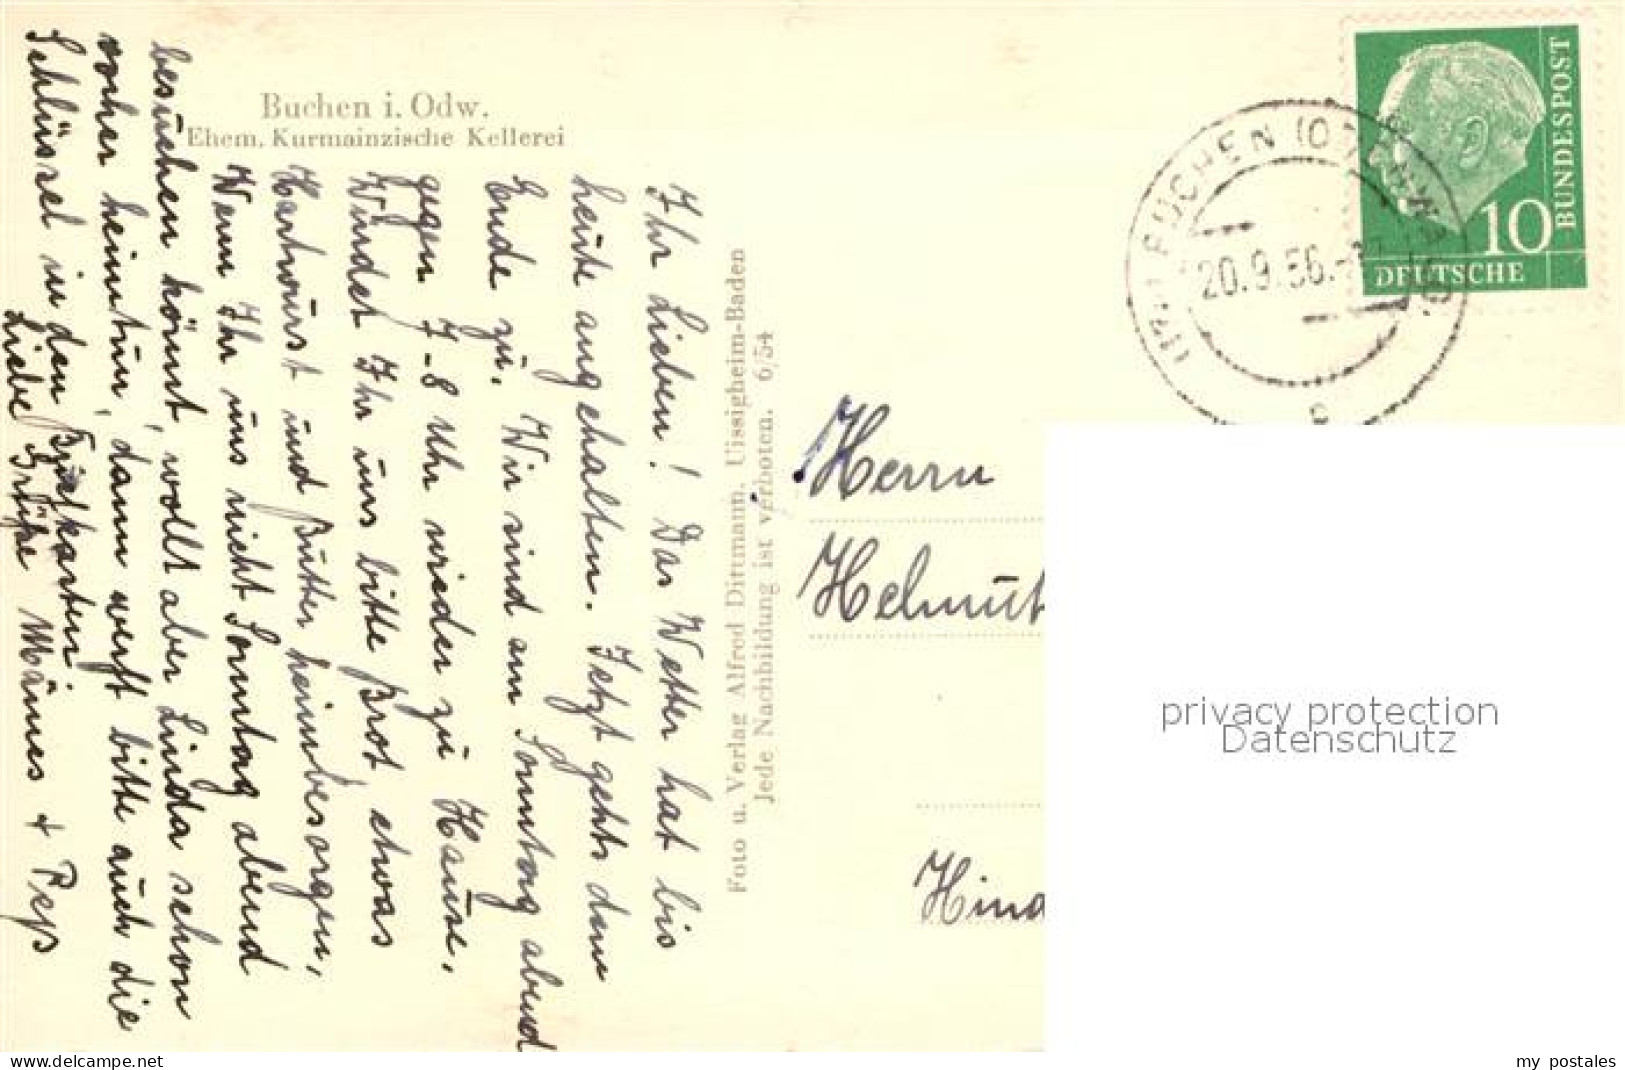 Buchen i. Odw.
Ehem. Kurmainzische Kellerei
Ihr Lieben! Das Wetter hat bis
heute angehalten. Jetzt gehts dem
Ende zu. Wir sind am Sonntag abend
gegen 7-8 Uhr wieder zu Hause.
Würdet Ihr uns bitte Brot, etwas
Hartwurst und Butter heimbesorgen,
Wenn Ihr uns nicht Sonntag abend
besuchen könnt, wollt aber Linda schon
vorher heimtun, dann werft bitte auch die
Schlüssel in den Briefkasten
Liebe Grüße Männes + Peps
Foto u. Verlag Alfred Dittmann, Uissigheim-Baden
Jede Nachbildung ist verboten. 6/54
BUCHEN (ODENWALD)
20.9.56.
DEUTSCHE
BUNDESPOST
10
Herrn
Helmut
Hind
privacy protection
Datenschutz
my postales